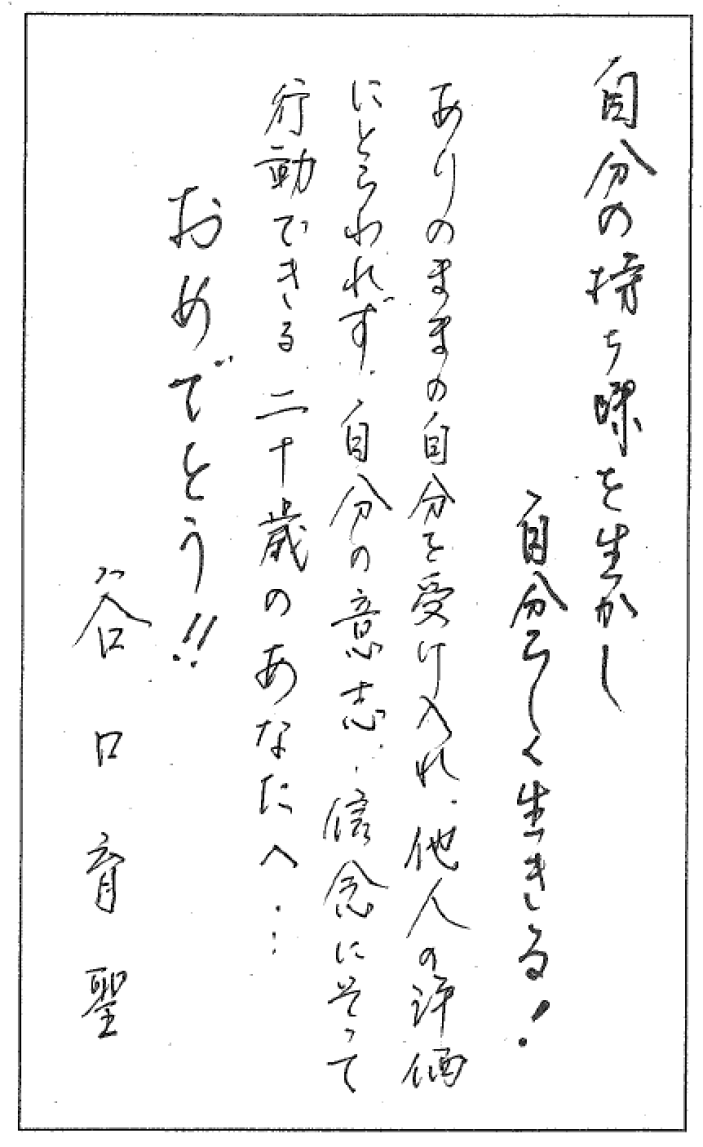 自分の持ち味を生かし
自分らしく生きる!
ありのままの自分を受け入れ、他人の評価
にとらわれず、自分の意志・信念にそって
行動できる二十歳のあなたへ…
おめでとう!!
谷口育聖